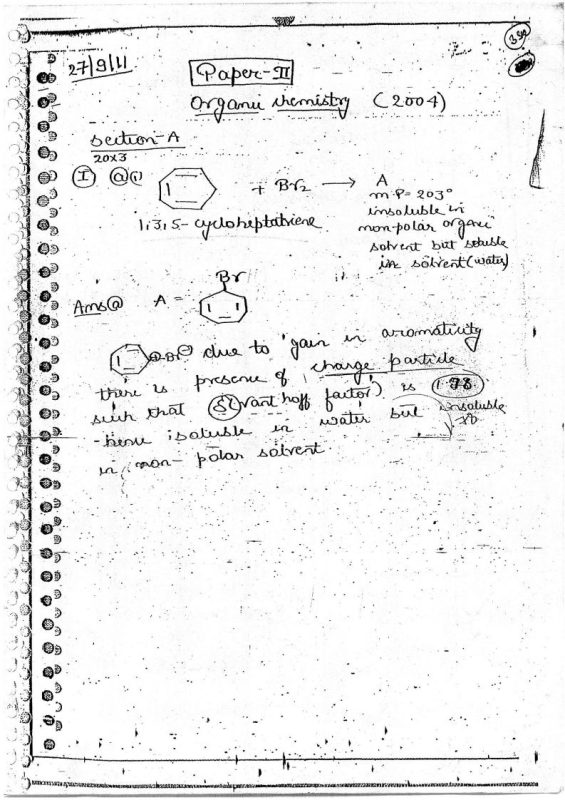 27/9/11
Paper-II
Organic chemistry (2004)
Section-A
20x3
I a(i) + Br2 → A
1,3,5-cycloheptatriene
m.P= 203°
insoluble in
non-polar organic
solvent but soluble
in solvent (water)
Br
Ans a A =
due to gain in aromaticity
there is presence of charge particle
such that (vant hoff factor) is
hence soluble in water but insoluble
in non-polar solvent